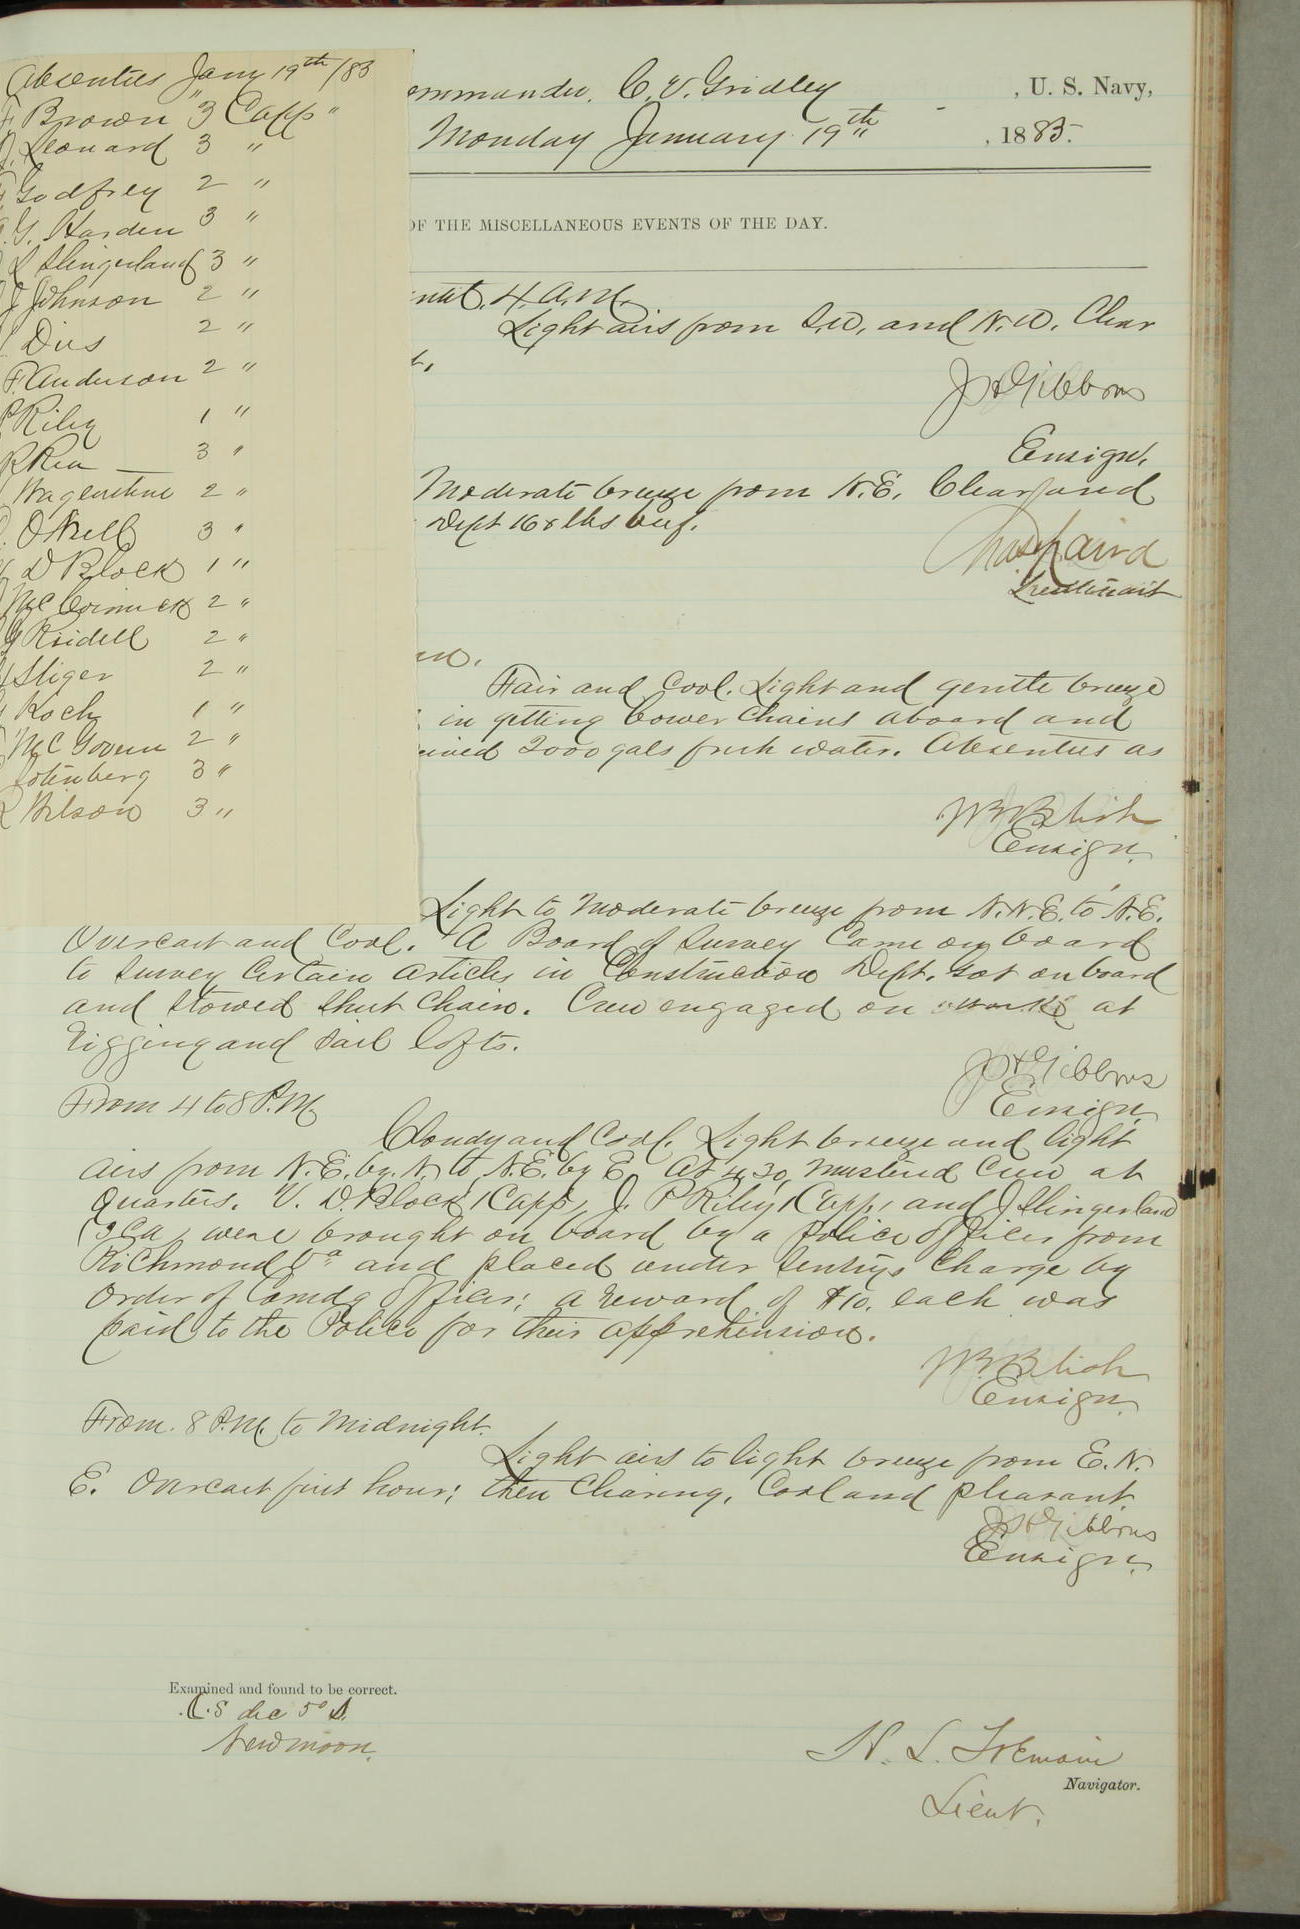 Absenties Jany 19th/85
Brown 3 Capp"
Leonard 3 "
Godfrey 2 "
G. Harden 3 "
Slingerland 3 "
J Johnson 2 "
Dies 2 "
F. Anderson 2 "
P Riley 1 "
R Rea 3 "
Wagenstine 2 "
O'Neill 3 "
D Block 1 "
McCormick 2 "
Reidell 2 "
Stiger 2 "
Koch 1 "
McGovern 2 "
3 "
Wilson 3 "
ommander. C. V. Gridley , U. S. Navy,
Monday January 19th , 1885.
OF THE MISCELLANEOUS EVENTS OF THE DAY.
4. A.M.
Light airs from S.W. and N.W. Clear
J H Gibbons
Ensign.
Moderate breeze from N.E. Clear and
Dept 168 lbs beef.
Chas Laird
Lieutenant
Fair and Cool. Light and gentle breeze
in getting bower chains aboard and
2000 gals fresh water. Absenties as
J B Blish
Ensign.
Light to moderate breeze from N.N.E. to N.E.
Overcast and Cool. A Board of Survey Came on board
to survey Certain articles in Construction Dept. Got on board
and stowed sheet chain. Crew engaged on at
rigging and sail lofts.
J H Gibbons
Ensign
From 4 to 8 P.M.
Cloudy and Cool. Light breeze and light
airs from N.E. by N. to N.E. by E. At 4.30, mustered Crew at
quarters. V. D. Block 1 Capp, J. P Riley 1 Capp, and J Slingerland
were brought on board by a police officer from
Richmond Va and placed under Sentry's Charge by
order of Comdg Officer; a reward of $10. each was
paid to the Police for their apprehension.
J B Blish
Ensign.
From 8 P.M. to Midnight.
Light airs to light breeze from E.N.
E. Overcast first hour; then Clearing, Cool and pleasant
J H Gibbons
Ensign.
Examined and found to be correct.
New moon.
Navigator.
Lieut.